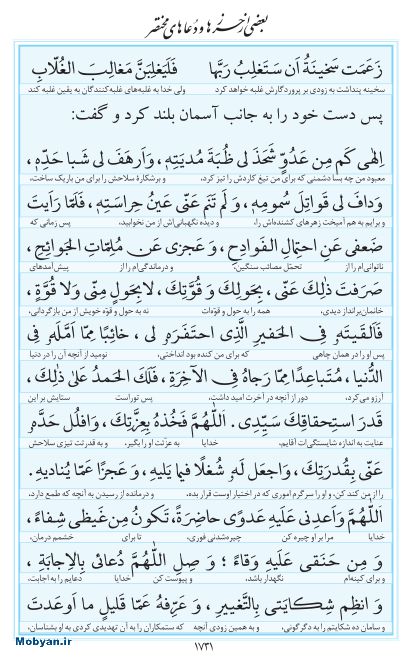 بعضی از حرزها و دعاهای مختصر
زَعَمَت سَخینَةُ اَن سَتَغلِبُ رَبَّها فَلَیَغلِبَنَّ مَغالِبَ الغُلّابِ
سخینه پنداشت به زودی بر پروردگارش غلبه خواهد کرد ولی خدا به غلبه‌های غلبه‌کنندگان به یقین غلبه کند
پس دست خود را به جانب آسمان بلند کرد و گفت:
اِلٰهی کَم مِن عَدُوٍّ شَحَذَ لی ظُبَةَ مُدیَتِهِ، وَ اَرهَفَ لی شَبا حَدِّهِ،
معبود من چه بسا دشمنی که برای من تیغ کاردش را تیز کرد، و برشکارهٔ سلاحش را برای من باریک ساخت،
وَ دافَ لی قَواتِلَ سُمومِهِ، وَ لَم تَنَم عَنّی عَینُ حِراسَتِهِ، فَلَمّا رَاَیتَ
و برایم به هم آمیخت زهرهای کشنده‌اش را، و دیده نگهبانی‌اش از من نخوابید، پس زمانی که
ضَعفی عَنِ احتِمالِ الفَوادِحِ، وَ عَجزی عَن مُلِمّاتِ الجَوائِحِ،
ناتوانی‌ام را از تحمّل مصائب سنگین، و درماندگی‌ام را از پیش‌آمدهای
صَرَفتَ ذٰلِکَ عَنّی، بِحَولِکَ وَ قُوَّتِکَ، لا بِحَولٍ مِنّی وَ لا قُوَّةٍ،
خانمان‌برانداز دیدی، همه را به حول و قوّه‌ات نه به حول و قوّه خویش از من بازگردانی،
فَاَلقَیتَهُ فِی الحَفیرِ الَّذِی احتَفَرَهُ لی، خائِبًا مِمّا اَمَّلَهُ فِی
پس او را در همان چاهی که برای من کنده بود انداختی، نومید از آنچه آن را در دنیا
الدُّنیا، مُتَباعِدًا مِمّا رَجاهُ فِی الآخِرَةِ، فَلَکَ الحَمدُ عَلیٰ ذٰلِکَ،
آرزو می‌کرد، دور از آنچه در آخرت امید داشت، پس توراست ستایش بر این
قَدرَ استِحقاقِکَ سَیِّدی. اَللّٰهُمَّ فَخُذهُ بِعِزَّتِکَ، وَ افلُل حَدَّهُ
عنایت به اندازه شایستگی‌ات آقایم، خدایا به عزّتت او را بگیر، و به قدرتت تیزی سلاحش
عَنّی بِقُدرَتِکَ، وَ اجعَل لَهُ شُغلًا فیما یَلیهِ، وَ عَجزًا عَمّا یُنادیهِ.
را از من کند کن، و او را سرگرم اموری که در اختیار اوست قرار بده، و درمانده از رسیدن به آنچه که طمع دارد،
اَللّٰهُمَّ وَ اَعدِنی عَلَیهِ عَدوًی حاضِرَةً، تَکونُ مِن غَیظی شِفاءً،
خدایا مرا بر او چیره کن چیره‌شدنی فوری، تا برای خشمم درمان،
وَ مِن حَنَقی عَلَیهِ وَقاءً؛ وَ صِلِ اللّٰهُمَّ دُعائی بِالاِجابَةِ،
و برای کینه‌ام نگهدار باشد، و پیوست کن خدایا دعایم را به اجابت،
وَ انظِم شِکایَتی بِالتَّغییرِ، وَ عَرِّفهُ عَمّا قَلیلٍ ما اَوعَدتَ
و سامان ده شکایتم را به دگرگونی، و به همین زودی آنچه که ستمکاران را به آن تهدیدی کردی به او بشناسان،
۱۷۳۱
Mobyan.ir